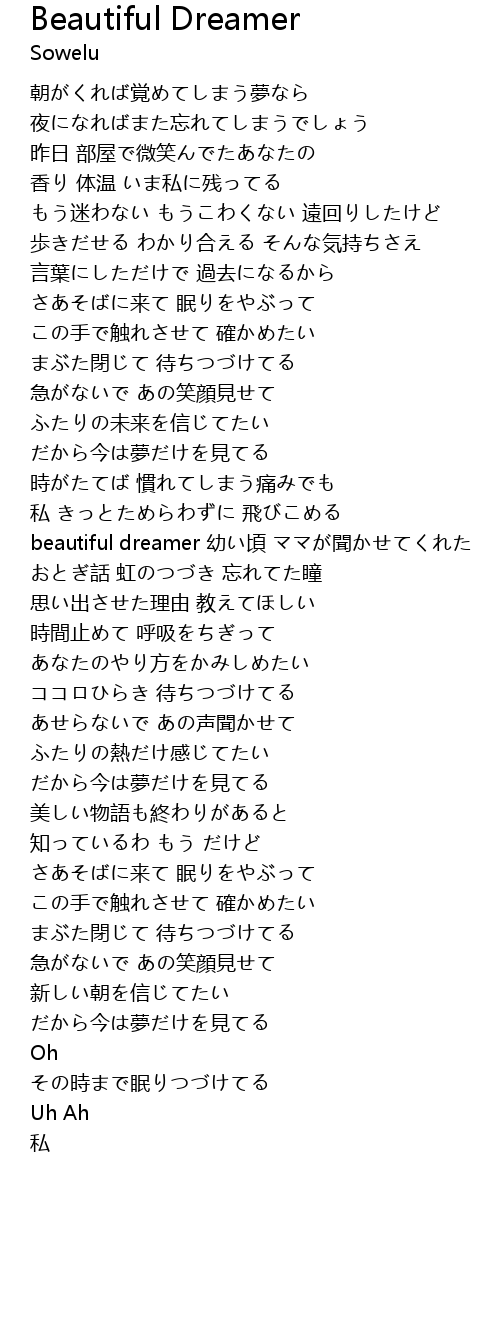 Beautiful Dreamer
Sowelu
朝がくれば覚めてしまう夢なら
夜になればまた忘れてしまうでしょう
昨日 部屋で微笑んでたあなたの
香り 体温 いま私に残ってる
もう迷わない もうこわくない 遠回りしたけど
歩きだせる わかり合える そんな気持ちさえ
言葉にしただけで 過去になるから
さあそばに来て 眠りをやぶって
この手で触れさせて 確かめたい
まぶた閉じて 待ちつづけてる
急がないで あの笑顔見せて
ふたりの未来を信じてたい
だから今は夢だけを見てる
時がたてば 慣れてしまう痛みでも
私 きっとためらわずに 飛びこめる
beautiful dreamer 幼い頃 ママが聞かせてくれた
おとぎ話 虹のつづき 忘れてた瞳
思い出させた理由 教えてほしい
時間止めて 呼吸をちぎって
あなたのやり方をかみしめたい
ココロひらき 待ちつづけてる
あせらないで あの声聞かせて
ふたりの熱だけ感じてたい
だから今は夢だけを見てる
美しい物語も終わりがあると
知っているわ もう だけど
さあそばに来て 眠りをやぶって
この手で触れさせて 確かめたい
まぶた閉じて 待ちつづけてる
急がないで あの笑顔見せて
新しい朝を信じてたい
だから今は夢だけを見てる
Oh
その時まで眠りつづけてる
Uh Ah
私